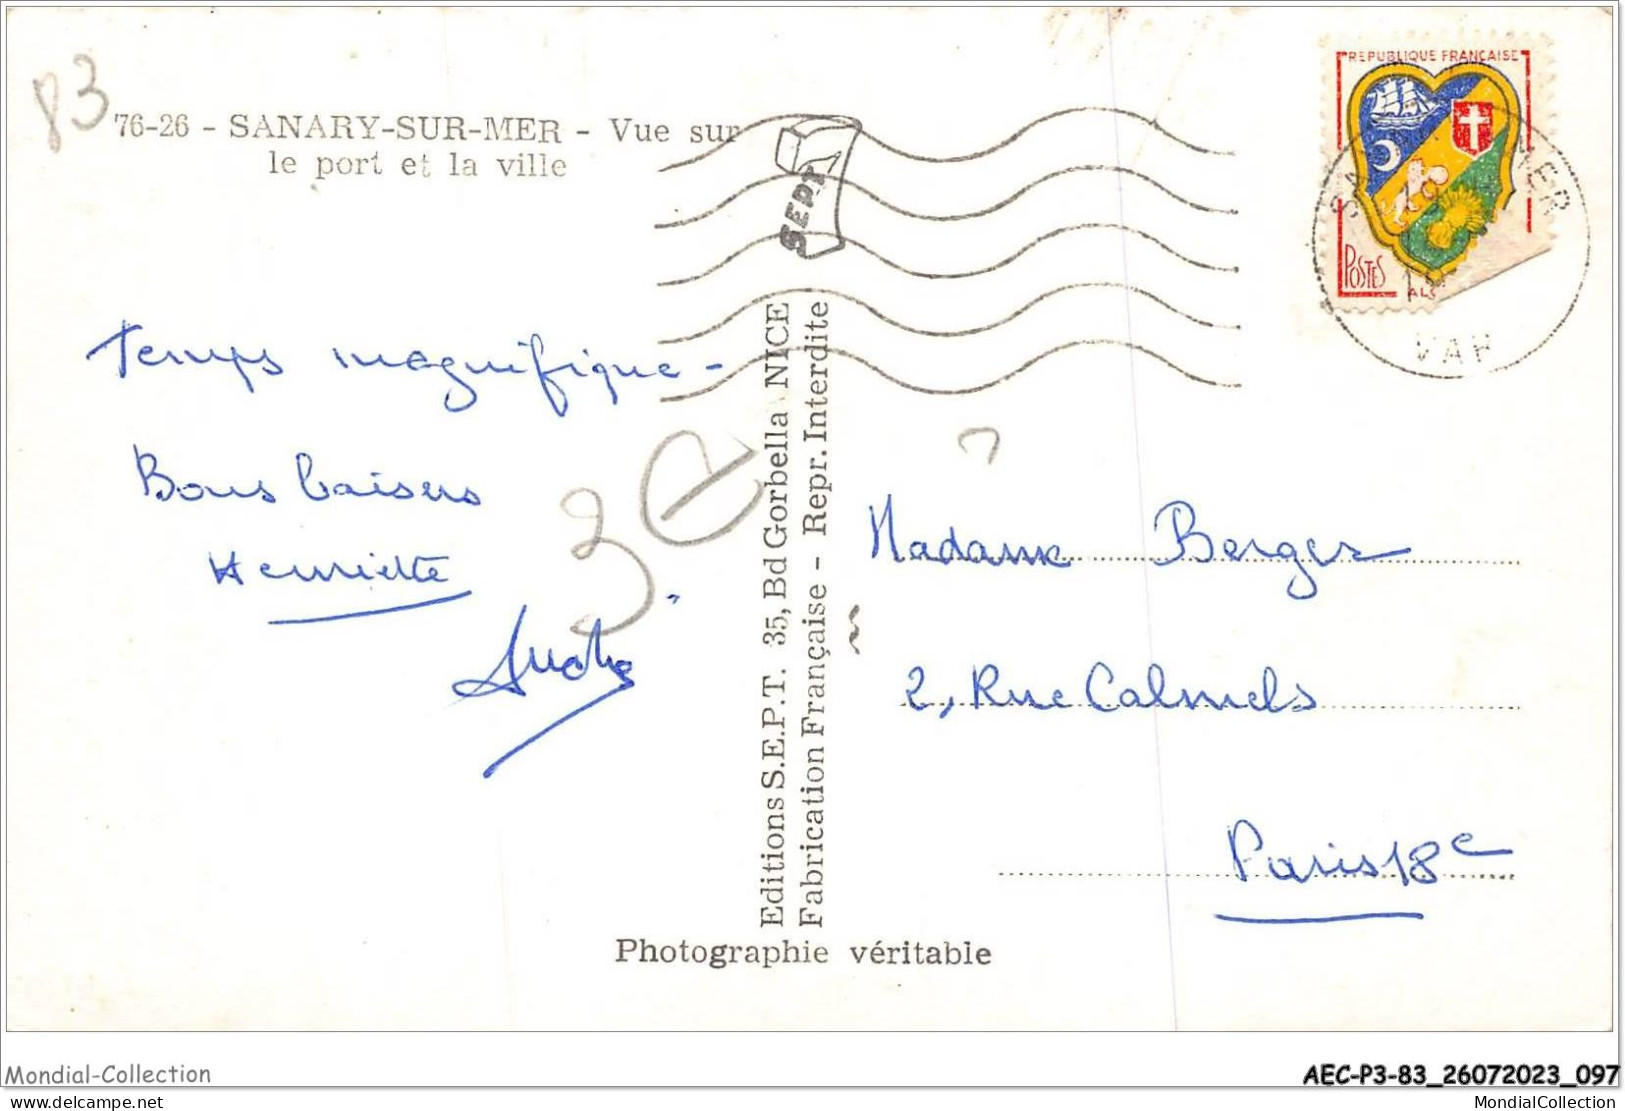 83
76-26 - SANARY-SUR-MER - Vue sur
le port et la ville
SEPT
REPUBLIQUE FRANÇAISE
POSTES
VAR
Temps magnifique -
Bons baisers
Henriette
Editions S.E.P.T. 35, Bd Gorbella NICE
Fabrication Française - Repr. Interdite
3e
Madame Berger
2, Rue Calmels
Paris 18e
Photographie véritable
Mondial-Collection
AEC-P3-83_26072023_097
delcampe.net
MondialCollection